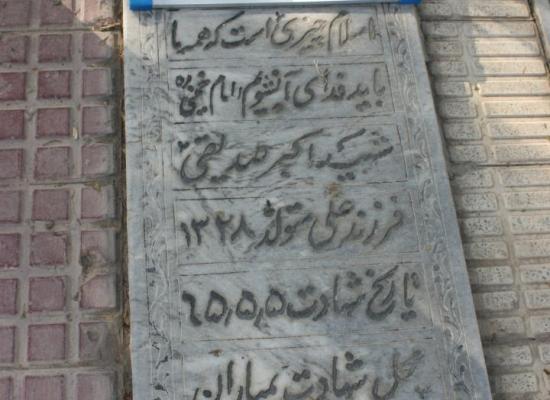 اسلام چیزی است که همه ما
باید فدای آن شویم (امام خمینی ره)
شهید اکبر صدیقی
فرزند علی متولد ۱۳۲۸
تاریخ شهادت ۶۵٫۵٫۵
محل شهادت بمباران